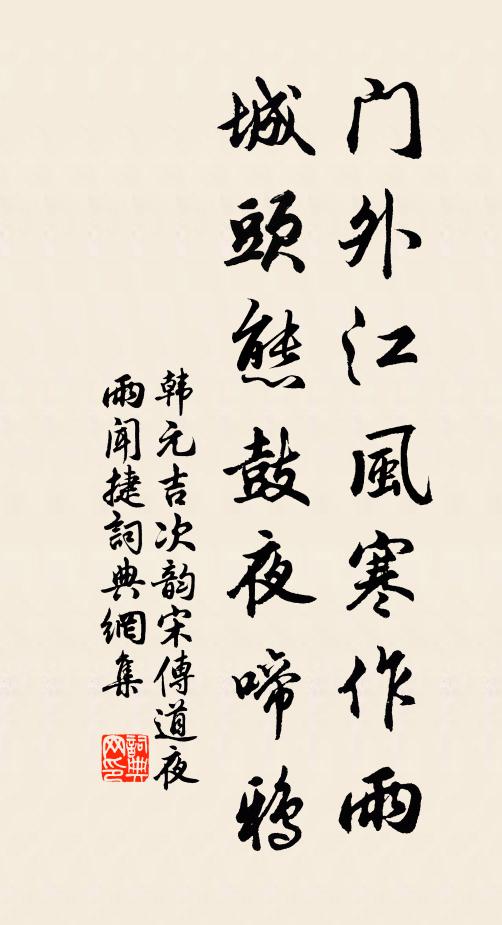 门外江風寒作雨
城頭熊鼓夜啼鴉
韩元吉次韵宋傅道夜
雨闻捷詞典網集
詞典网印